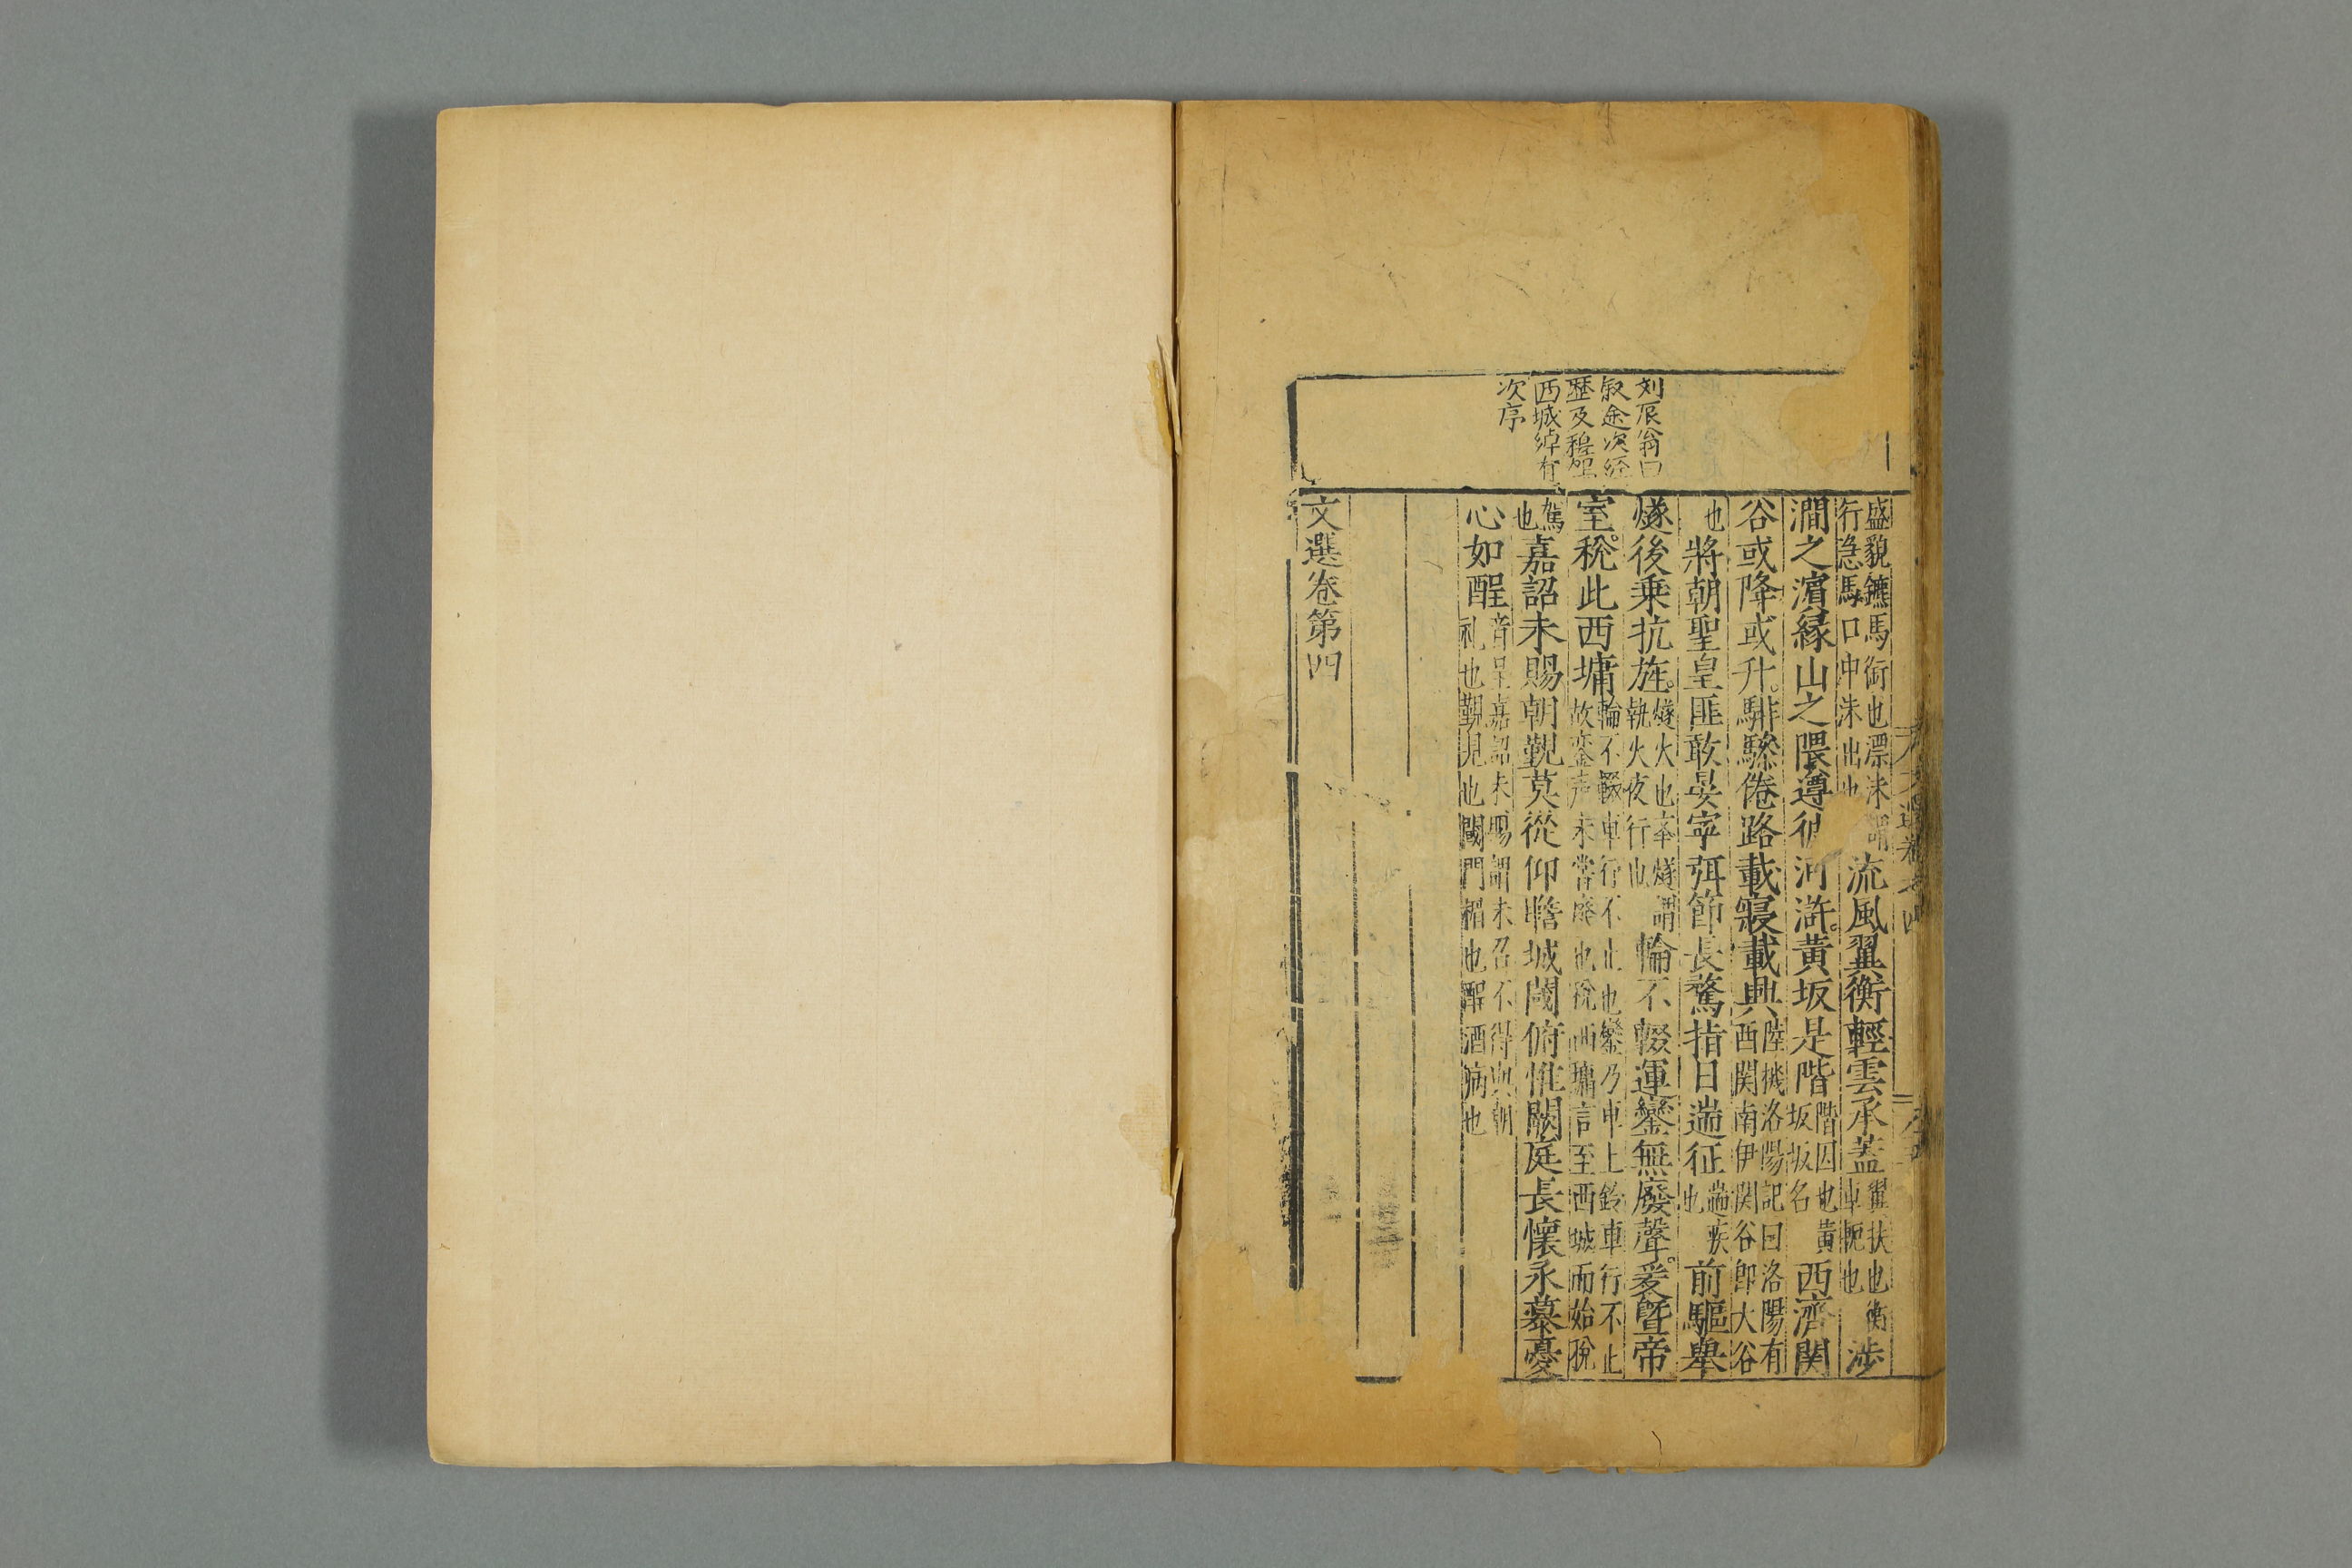 刘辰翁曰
叙途次経
歷及稅
西城綽有
次序
盛貌鑣馬銜也漂沫謂
行急馬口中沫出也
流風翼衡輕雲承蓋
翼扶也衡
車軛也
涉
澗之濵緣山之隈遵彼河滸黄坂是階
階因也黄
坂坂名
西濟関
谷或降或升騑驂倦路載寢載興
陸機洛陽記曰洛陽有
西関南伊関谷卽大谷
也
將朝聖皇匪敢晏寜弭節長騖指日遄征
遄疾
也
前驅舉
燧後乗抗旌
燧火也舉燧謂
執火夜行也
輪不輟運鑾無廢聲爰曁帝
室稅此西墉
輪不輟車行不止也鑾乃車上鈴車行不止
故鑾声未嘗廢也稅西墉言至西城而始稅
駕
也
嘉詔未賜朝覲莫從仰瞻城閾俯惟闕庭長懷永慕憂
心如酲
音呈嘉詔未賜謂未召不得與朝
礼也覲見也閾門楣也酲酒病也
文選卷第四